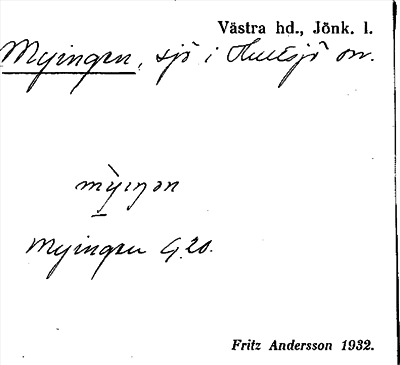 Västra hd., Jönk. l.
Myingen, sjö i Hultsjö sn.
mỳiŋən
Myingen G.20.
Fritz Andersson 1932.